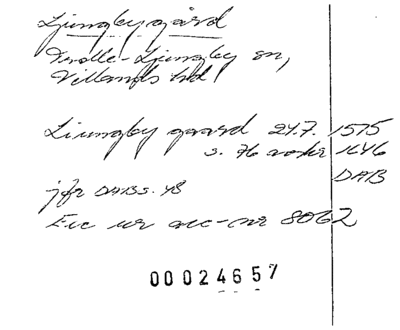 Ljungby gård
Trolle-Ljungby sn,
Villands hd
Liungby gaard 24.7. 1575
s. 76 1646
DAB
jfr DAB s. 48
Exc ur acc-nr 8062
00024657